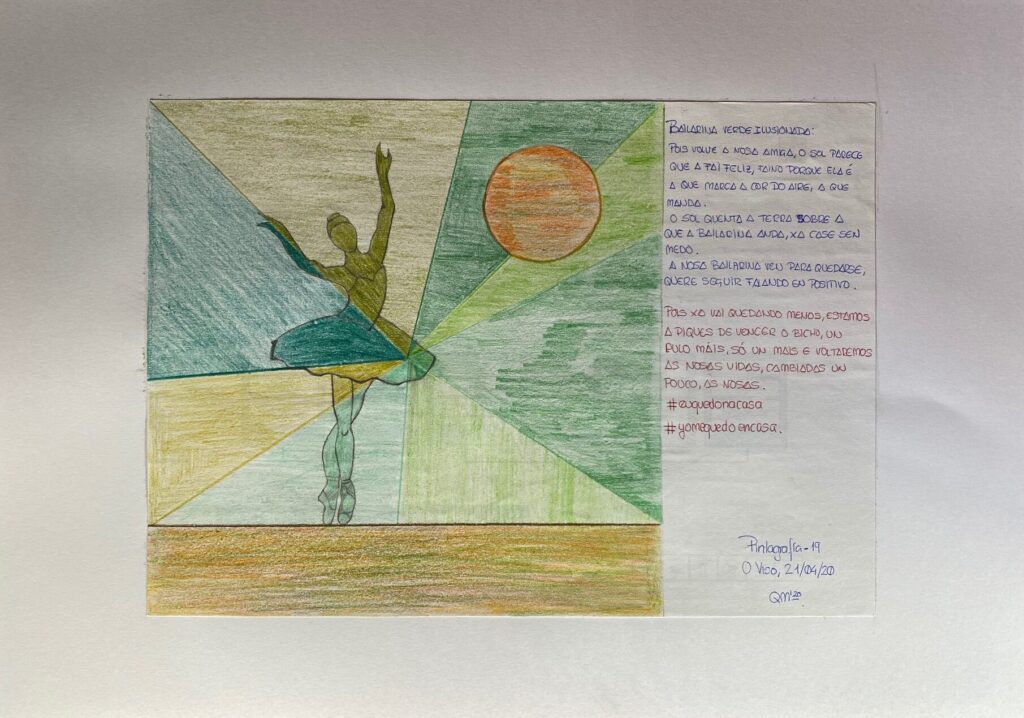 BAILARINA VERDE ILUSIONADA:
POIS VOLVE A NOSA AMIGA, O SOL PARECE
QUE A FAI FELIZ, FAINO PORQUE ELA É
A QUE MARCA A COR DO AIRE, A QUE
MANDA.
O SOL QUENTA A TERRA SOBRE A
QUE A BAILARINA ANDA, XA CASE SEN
MEDO.
A NOSA BAILARINA VEU PARA QUEDARSE,
QUERE SEGUIR FALANDO EN POSITIVO.
POIS XA VAI QUEDANDO MENOS, ESTAMOS
A PIQUES DE VENCER O BICHO, UN
PULO MÁIS, SÓ UN MAIS E VOLTAREMOS
AS NOSAS VIDAS, CAMBIADAS UN
POUCO, AS NOSAS.
#euquedonacasa
#yomequedoencasa.
Pintagafía-19
O Viso, 21/04/20
QM'20